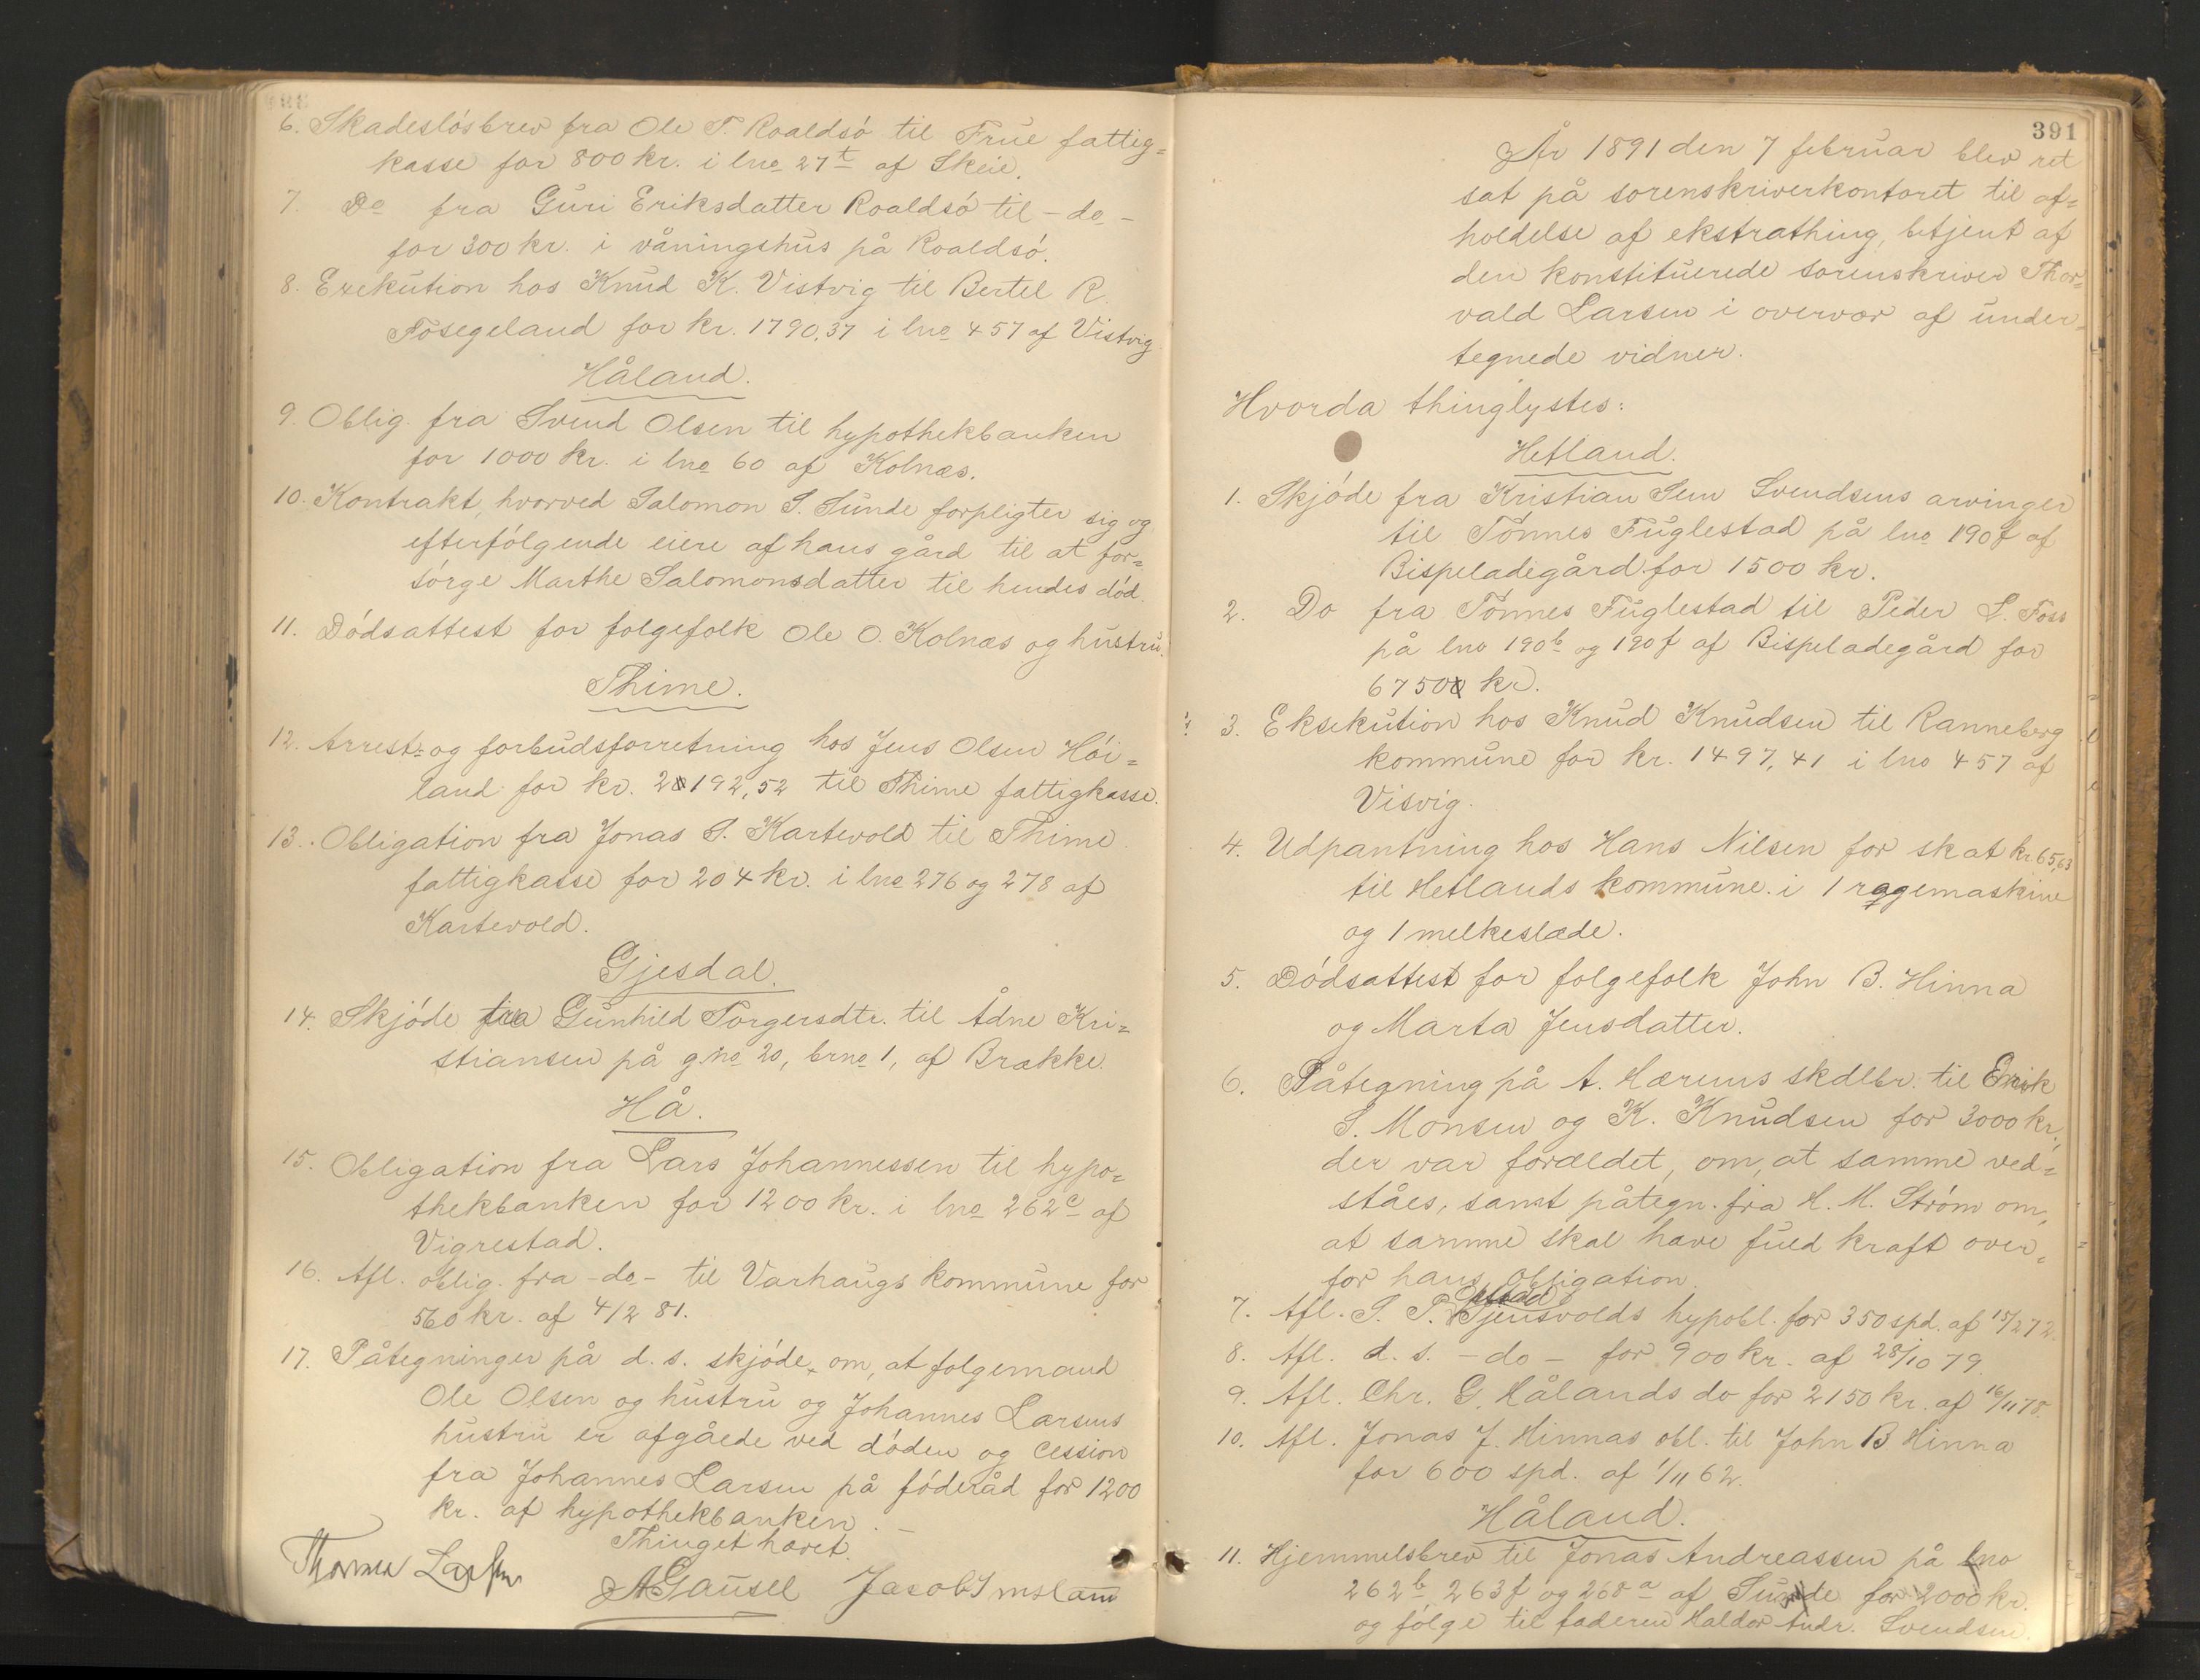 6. Skadesløsbrev fra Ole T. Roaldsø til Frue fattig=
kasse for 800 kr. i lno 27t af Skeie.
7. Do fra Guri Eriksdatter Roaldsø til - do -
for 200 kr. i våningshus på Roaldsø.
8. Exekution hos Knud K. Vistvig til Bertel R.
Fosegeland for kr. 1790,37 i lno 457 af Vistvig
Håland.
9. Oblig. fra Svend Olsen til hypothekbanken
for 1000 kr. i lno 60 af Kolnæs.
10. Kontrakt, hvorved Salomon S. Sunde forpligter sig og
efterfølgende eiere af hans gård til at for=
sørge Marthe Salomonsdatter til hendes død.
11. Dødsattest for folgefolk Ole O. Kolnæs og hustru.
Thime.
12. Arrest- og forbudsforretning hos Jens Olsen Høi=
land for kr. 2192,52 til Thime fattigkasse.
13. Obligation fra Jonas S. Kartevold til Thime
fattigkasse for 204 kr. i lno 276 og 278 af
Kartevold.
Gjesdal.
14. Skjøde fra Gunhild Torgersdtr. til Ådne Kri=
stiansen på gno 20, brno 1, af Brække.
Hå.
15. Obligation fra Lars Johannessen til hypo=
thekbanken for 1200 kr. i lno 262c af
Vigrestad.
16. Afl. oblig. fra - do - til Varhaugs kommune for
560 kr. af 4/2 81.
17. Påtegninger på d. s. skjøde, om, at folgemand
Ole Olsen og hustru og Johannes Larsens
hustru er afgåede ved døden og cession
fra Johannes Larsen på føderåd for 1200
kr. af hypothekbanken. -
Thinget hævet.
Larsen
A Gausel Jacob Imsland
391
År 1891 den 7 februar blev ret
sat på sorenskriverkontoret til af=
holdelse af ekstrathing, betjent af
den konstituerede sorenskriver Thor=
vald Larsen i overvær af under=
tegnede vidner.
Hvorda thinglystes:
Hetland.
1. Skjøde fra Kristian Sem Svendsens arvinger
til Tønnes Fuglestad på lno 190f af
Bispeladegård for 1500 kr.
2. Do fra Tønnes Fuglestad til Peder L. Foss
på lno 190b og 190f af Bispeladegård for
6750 kr.
3. Eksekution hos Knud Knudsen til Ranneberg
kommune for kr. 1497,41 i lno 457 af
Visvig.
4. Udpantning hos Hans Nilsen for skat kr. 65,63
til Hetlands kommune i 1 ragemaskine
og 1 melkeslæde.
5. Dødsattest for folgefolk John B. Hinna
og Marta Jensdatter.
6. Påtegning på A. Hærems skdlbr. til Erik
S. Monsen og K. Knudsen for 3000 kr.,
der var forældet, om, at samme ved=
ståes, samt påtegn. fra H. M. Strøm om,
at samme skal have fuld kraft over=
for hans obligation.
7. Afl. S. P. Gjensvolds hypobl. for 350 spd. af 15/2 72.
8. Afl. d. s. - do - for 900 kr. af 28/10 79.
9. Afl. Chr. G. Hålands do for 2150 kr. af 16/11 78.
10. Afl. Jonas J. Hinnas obl. til John B Hinna
for 600 spd. af 1/11 62.
Håland.
11. Hjemmelsbrev til Jonas Andreassen på lno
262b, 263f og 268a af Sunde for 2000 kr.
og følge til faderen Haldor Andr. Svendsen.